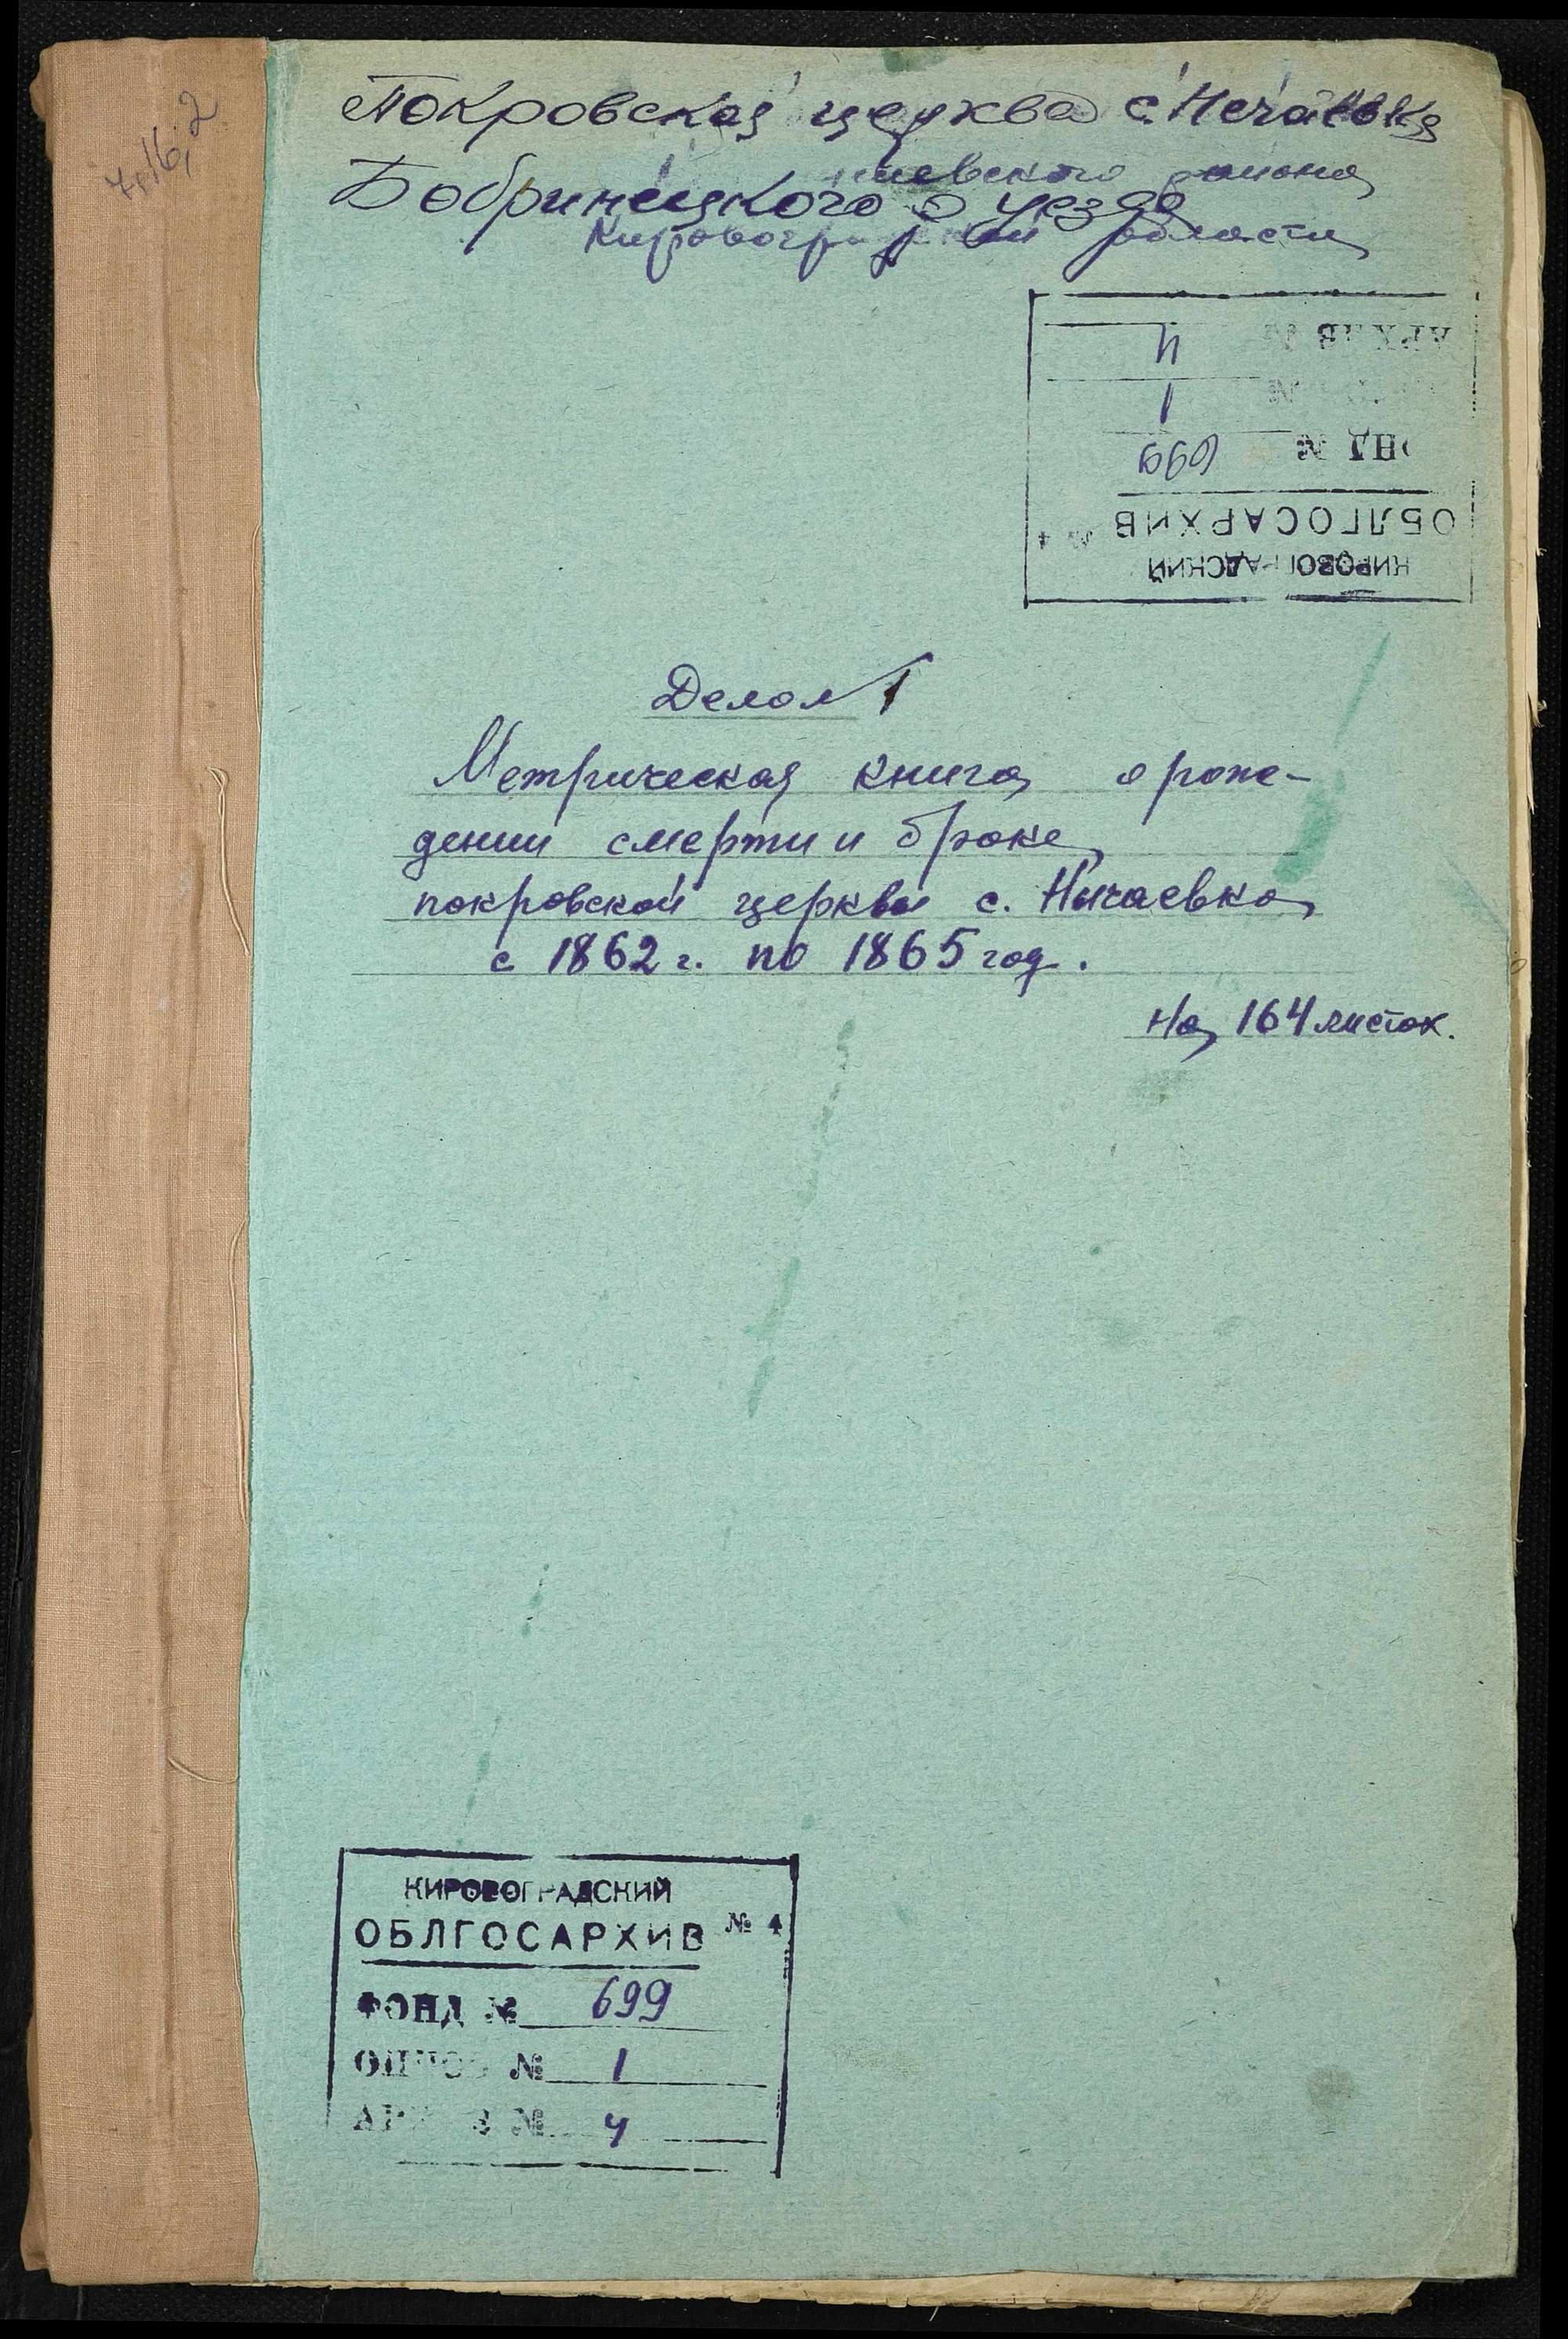 7, 16, 2
Покровская церква с. Нечаевка
Бобринецкого уезда
района
Кировоградской области
АРХИВ № 4
№ 1
ФОНД № 699
ОБЛГОСАРХИВ № 4
КИРОВОГРАДСКИЙ
Дело № 1
Метрическая книга о рож-
дении смерти и браке
покровской церкви с. Ничаевка
с 1862 г. по 1865 год.
На 164 листах.
КИРОВОГРАДСКИЙ
ОБЛГОСАРХИВ № 4
ФОНД № 699
ОПИСЬ № 1
АРХИВ № 4